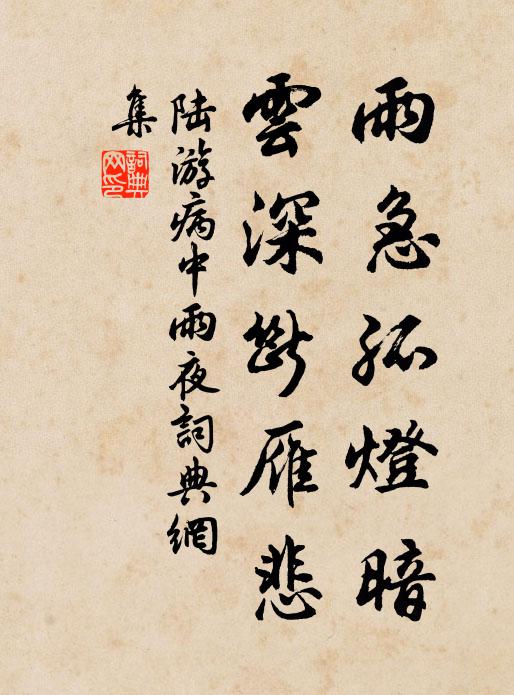 雨急孤燈暗
雲深斷雁悲
陸游病中雨夜詞典網
集
詞典
网印